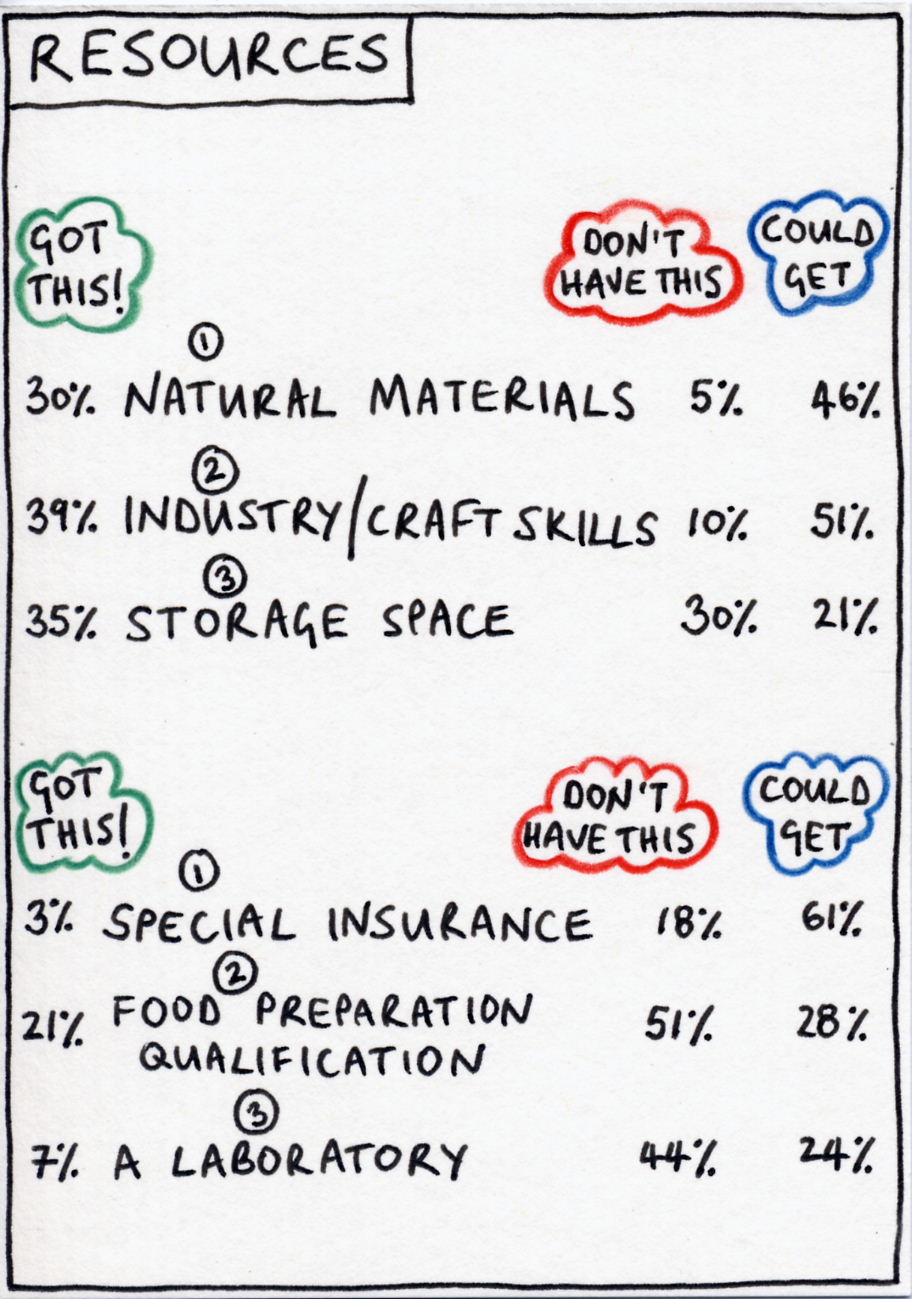 RESOURCES
GOT THIS! DON'T HAVE THIS COULD GET
①
30% NATURAL MATERIALS 5% 46%
②
39% INDUSTRY/CRAFT SKILLS 10% 51%
③
35% STORAGE SPACE 30% 21%
GOT THIS! DON'T HAVE THIS COULD GET
①
3% SPECIAL INSURANCE 18% 61%
②
21% FOOD PREPARATION 51% 28%
QUALIFICATION
③
7% A LABORATORY 44% 24%